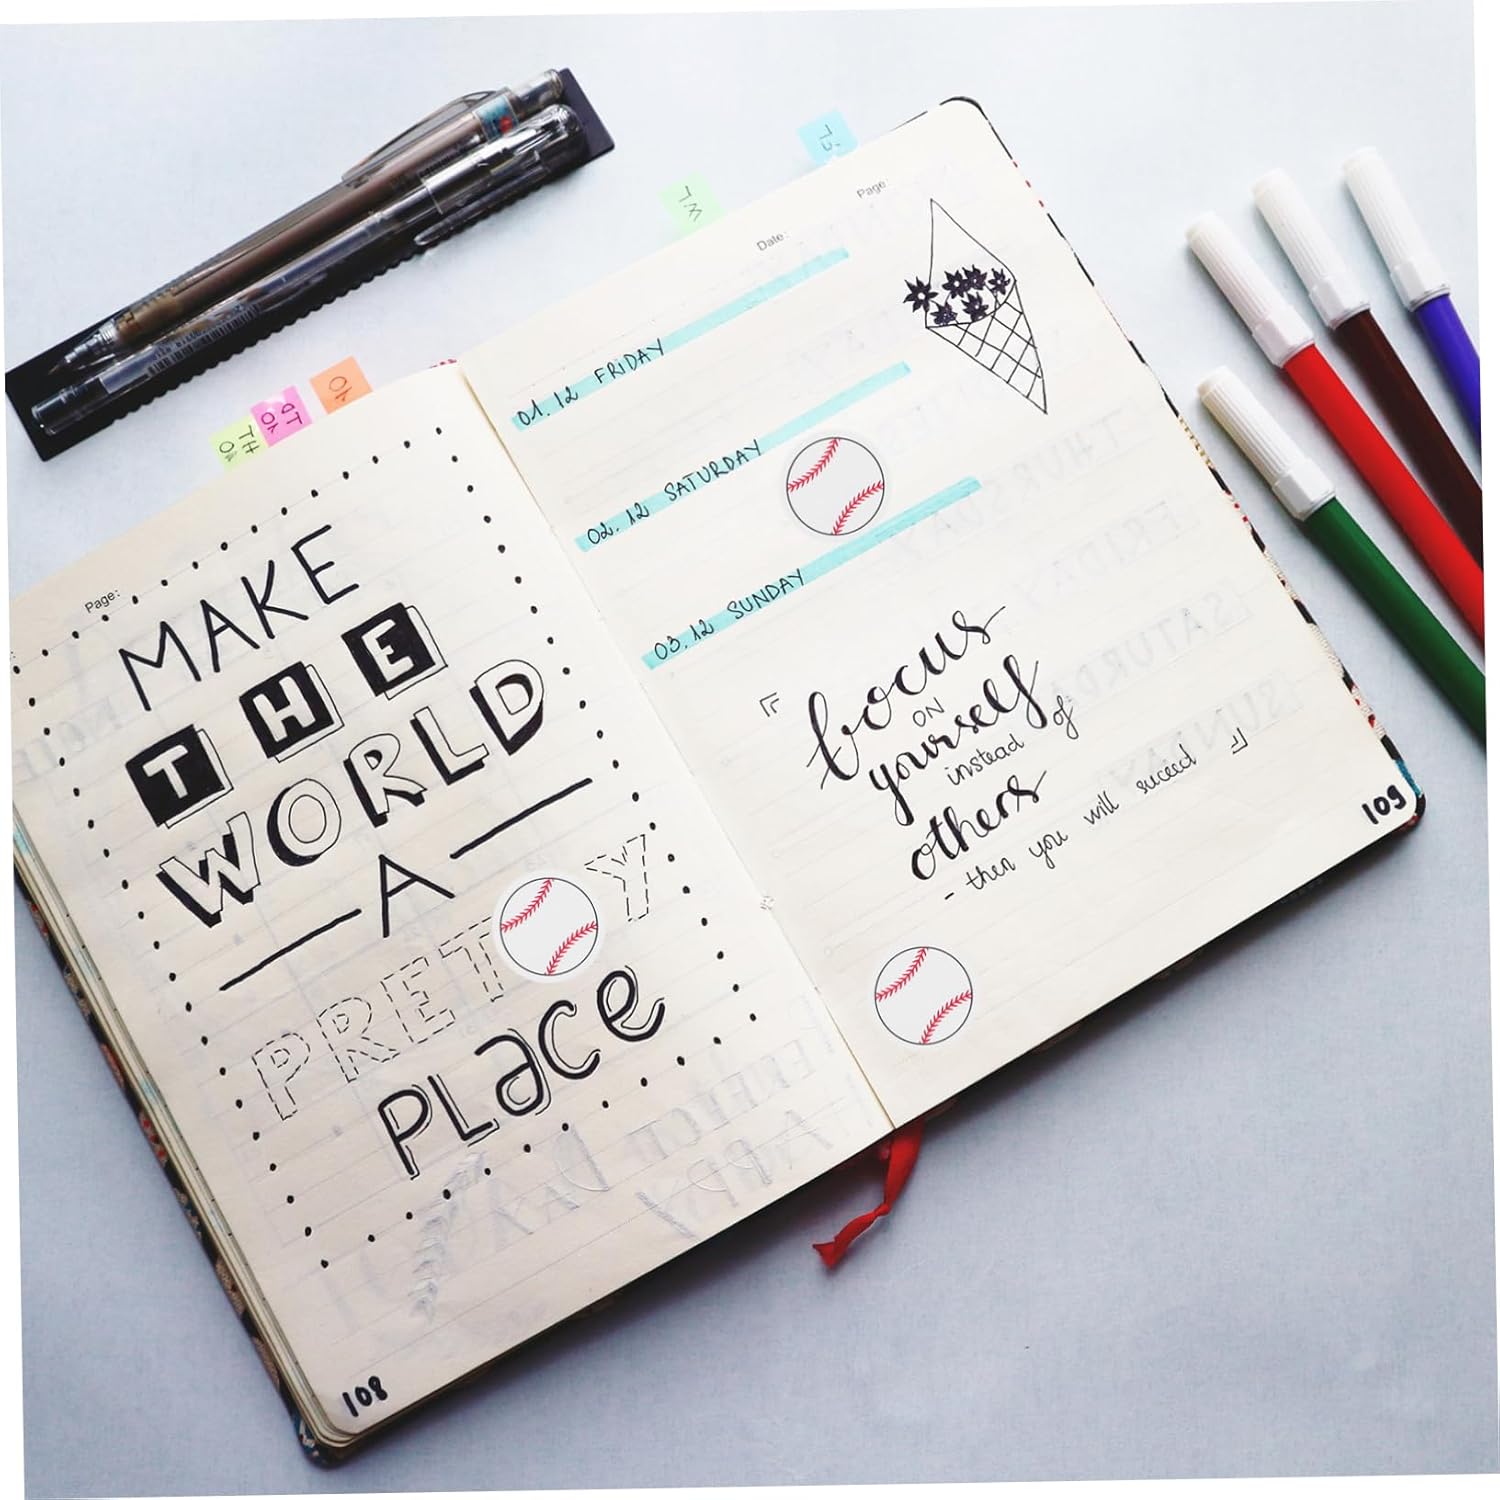 Page:
MAKE
THE
WORLD
— A —
PRET Y
PLace
108
Date:
Page
01.12 FRIDAY
02.12 SATURDAY
03.12 SUNDAY
focus
ON
yourself
instead of:
others
- then you will succed
109